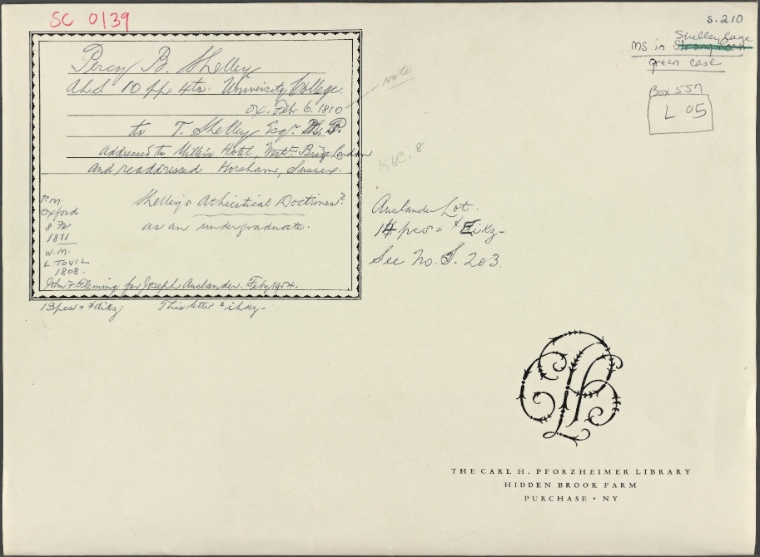 SC 0139
S.210
Shelley Cage
MS in
green case
Box 557
L 05
Percy B. Shelley
ALS 10 pp 4to. University College.
Ox. Feb 6. 1810
note
to T. Shelley Esqr. M.P.
addressed to Hotel, London
and readdressed Horsham, Sussex.
Shelley's Atheistical Doctrines
as an undergraduate.
P.M.
Oxford
8 Fe
1811
W.M.
L TOVIL
1808.
John F. Fleming for Joseph Auslander. Feb 1954.
13 pcs =
This letter
Auslander Lot.
14 pcs =
See No. S. 203.
THE CARL H. PFORZHEIMER LIBRARY
HIDDEN BROOK FARM
PURCHASE • NY